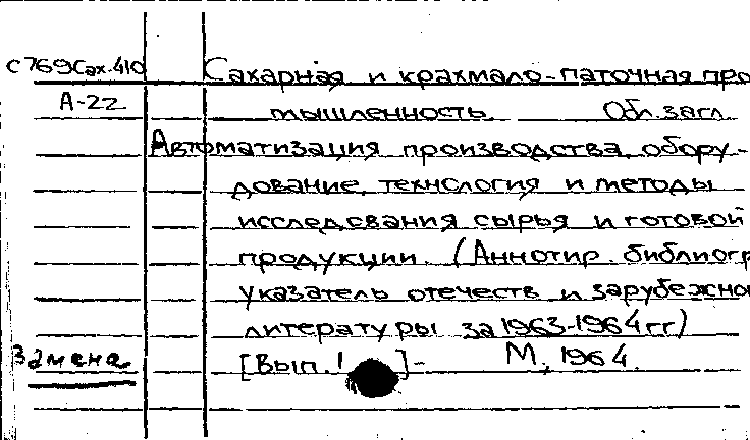 С769Сах.410 Сахарная и крахмало-паточная про
А-22 мышленность Обл.загл.
Автоматизация производства, обору-
дование, технология и методы
исследования сырья и готовой
продукции. (Аннотир. библиогр
указатель отечеств и зарубежно
литературы за 1963-1964 гг)
Замена [Вып. 1 ]- М, 1964.